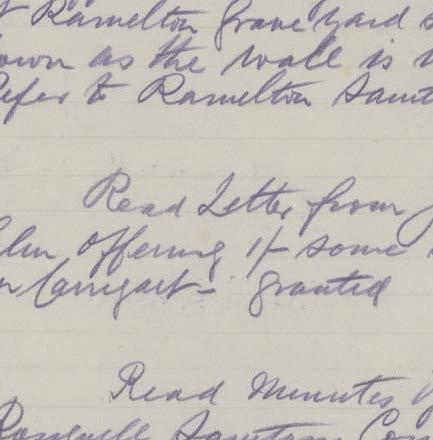 Ramelton Grave Yard
down as the wall is
Refer to Ramelton Sanit
Read Letter from
offering 1/- some
Carrigart - granted
Read Minutes
Sanitary